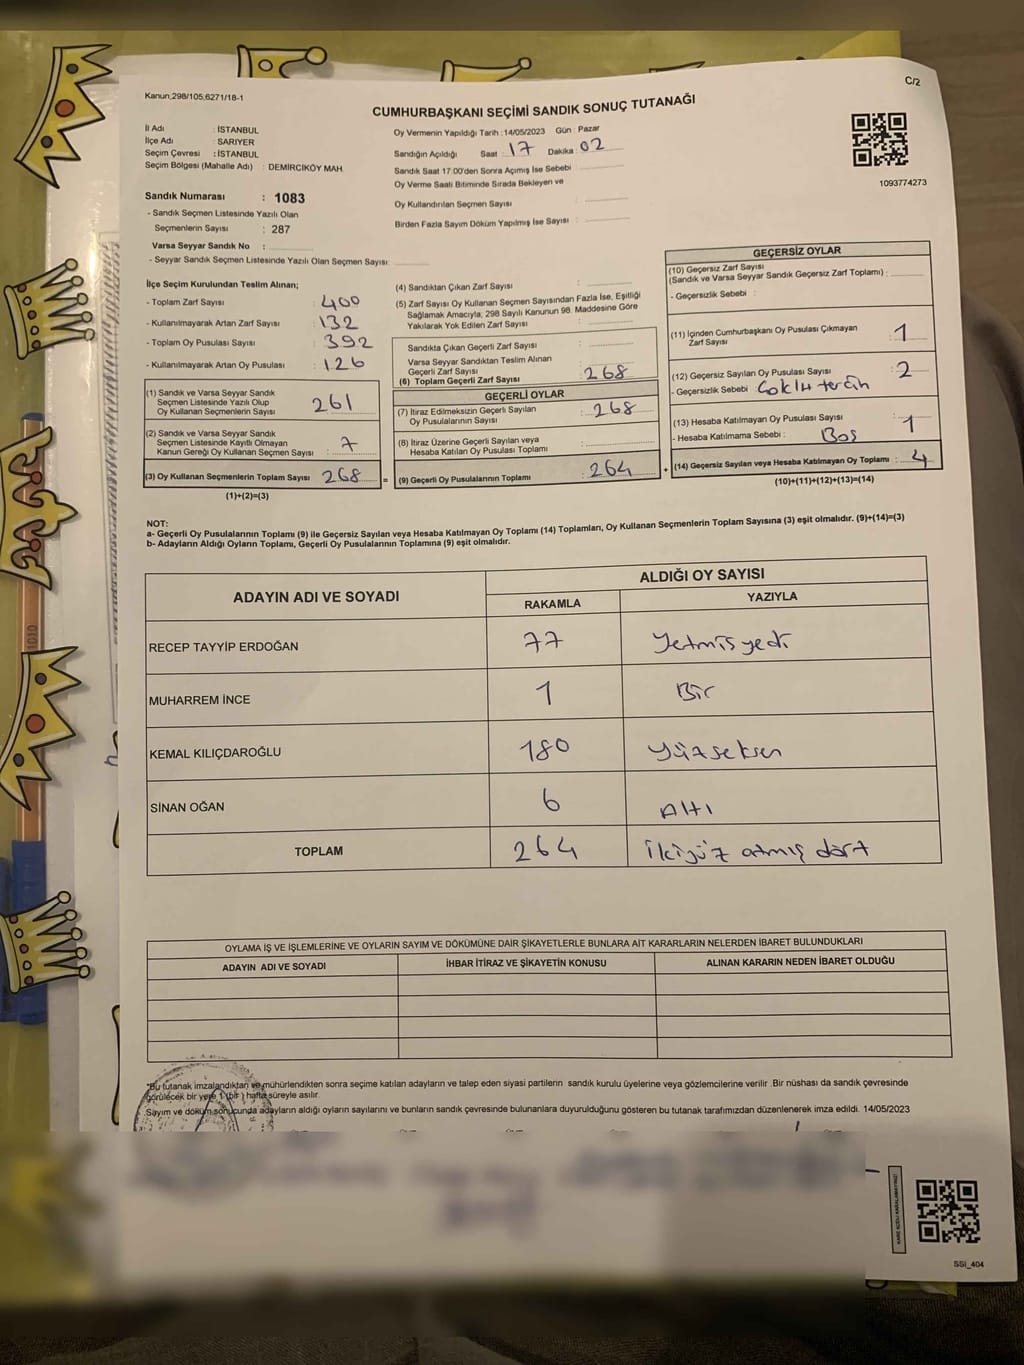 C/2
Kanun,298/105,6271/18-1
CUMHURBAŞKANI SEÇİMİ SANDIK SONUÇ TUTANAĞI
İl Adı : İSTANBUL
İlçe Adı : SARIYER
Seçim Çevresi : İSTANBUL
Seçim Bölgesi (Mahalle Adı) : DEMİRCİKÖY MAH.
Sandık Numarası : 1083
- Sandık Seçmen Listesinde Yazılı Olan
Seçmenlerin Sayısı : 287
Varsa Seyyar Sandık No :
- Seyyar Sandık Seçmen Listesinde Yazılı Olan Seçmen Sayısı:
Oy Vermenin Yapıldığı Tarih : 14/05/2023 Gün : Pazar
Sandığın Açıldığı Saat : 17 Dakika : 02
Sandık Saat 17.00'den Sonra Açımış İse Sebebi :
Oy Verme Saati Bitiminde Sırada Bekleyen ve
Oy Kullandırılan Seçmen Sayısı :
Birden Fazla Sayım Döküm Yapılmış İse Sayısı :
1093774273
İlçe Seçim Kurulundan Teslim Alınan;
- Toplam Zarf Sayısı : 400
- Kullanılmayarak Artan Zarf Sayısı : 132
- Toplam Oy Pusulası Sayısı : 392
- Kullanılmayarak Artan Oy Pusulası : 126
(1) Sandık ve Varsa Seyyar Sandık
Seçmen Listesinde Yazılı Olup
Oy Kullanan Seçmenlerin Sayısı : 261
(2) Sandık ve Varsa Seyyar Sandık
Seçmen Listesinde Kayıtlı Olmayan
Kanun Gereği Oy Kullanan Seçmen Sayısı : 7
(3) Oy Kullanan Seçmenlerin Toplam Sayısı : 268
(1)+(2)=(3)
(4) Sandıktan Çıkan Zarf Sayısı :
(5) Zarf Sayısı Oy Kullanan Seçmen Sayısından Fazla İse, Eşitliği
Sağlamak Amacıyla; 298 Sayılı Kanunun 98. Maddesine Göre
Yakılarak Yok Edilen Zarf Sayısı :
Sandıkta Çıkan Geçerli Zarf Sayısı :
Varsa Seyyar Sandıktan Teslim Alınan
Geçerli Zarf Sayısı :
(6) Toplam Geçerli Zarf Sayısı : 268
GEÇERLİ OYLAR
(7) İtiraz Edilmeksizin Geçerli Sayılan
Oy Pusulalarının Sayısı : 268
(8) İtiraz Üzerine Geçerli Sayılan veya
Hesaba Katılan Oy Pusulası Toplamı :
= (9) Geçerli Oy Pusulalarının Toplamı : 264 +
GEÇERSİZ OYLAR
(10) Geçersiz Zarf Sayısı
(Sandık ve Varsa Seyyar Sandık Geçersiz Zarf Toplamı) :
- Geçersizlik Sebebi :
(11) İçinden Cumhurbaşkanı Oy Pusulası Çıkmayan
Zarf Sayısı : 1
(12) Geçersiz Sayılan Oy Pusulası Sayısı : 2
- Geçersizlik Sebebi : Çoklu tercih
(13) Hesaba Katılmayan Oy Pusulası Sayısı : 1
- Hesaba Katılmama Sebebi : Boş
(14) Geçersiz Sayılan veya Hesaba Katılmayan Oy Toplamı : 4
(10)+(11)+(12)+(13)=(14)
NOT:
a- Geçerli Oy Pusulalarının Toplamı (9) ile Geçersiz Sayılan veya Hesaba Katılmayan Oy Toplamı (14) Toplamları, Oy Kullanan Seçmenlerin Toplam Sayısına (3) eşit olmalıdır. (9)+(14)=(3)
b- Adayların Aldığı Oyların Toplamı, Geçerli Oy Pusulalarının Toplamına (9) eşit olmalıdır.
ADAYIN ADI VE SOYADI ALDIĞI OY SAYISI
RAKAMLA YAZIYLA
RECEP TAYYİP ERDOĞAN 77 Yetmişyedi
MUHARREM İNCE 1 Bir
KEMAL KILIÇDAROĞLU 180 Yüzseksen
SİNAN OĞAN 6 Altı
TOPLAM 264 İkiyüz atmış dört
OYLAMA İŞ VE İŞLEMLERİNE VE OYLARIN SAYIM VE DÖKÜMÜNE DAİR ŞİKAYETLERLE BUNLARA AİT KARARLARIN NELERDEN İBARET BULUNDUKLARI
ADAYIN ADI VE SOYADI İHBAR İTİRAZ VE ŞİKAYETİN KONUSU ALINAN KARARIN NEDEN İBARET OLDUĞU
*Bu tutanak imzalandıktan ve mühürlendikten sonra seçime katılan adayların ve talep eden siyasi partilerin sandık kurulu üyelerine veya gözlemcilerine verilir. Bir nüshası da sandık çevresinde
görülecek bir yere 1 (bir ) hafta süreyle asılır.
Sayım ve döküm sonucunda adayların aldığı oyların sayılarını ve bunların sandık çevresinde bulunanlara duyurulduğunu gösteren bu tutanak tarafımızdan düzenlenerek imza edildi. 14/05/2023
SSI_404
1010